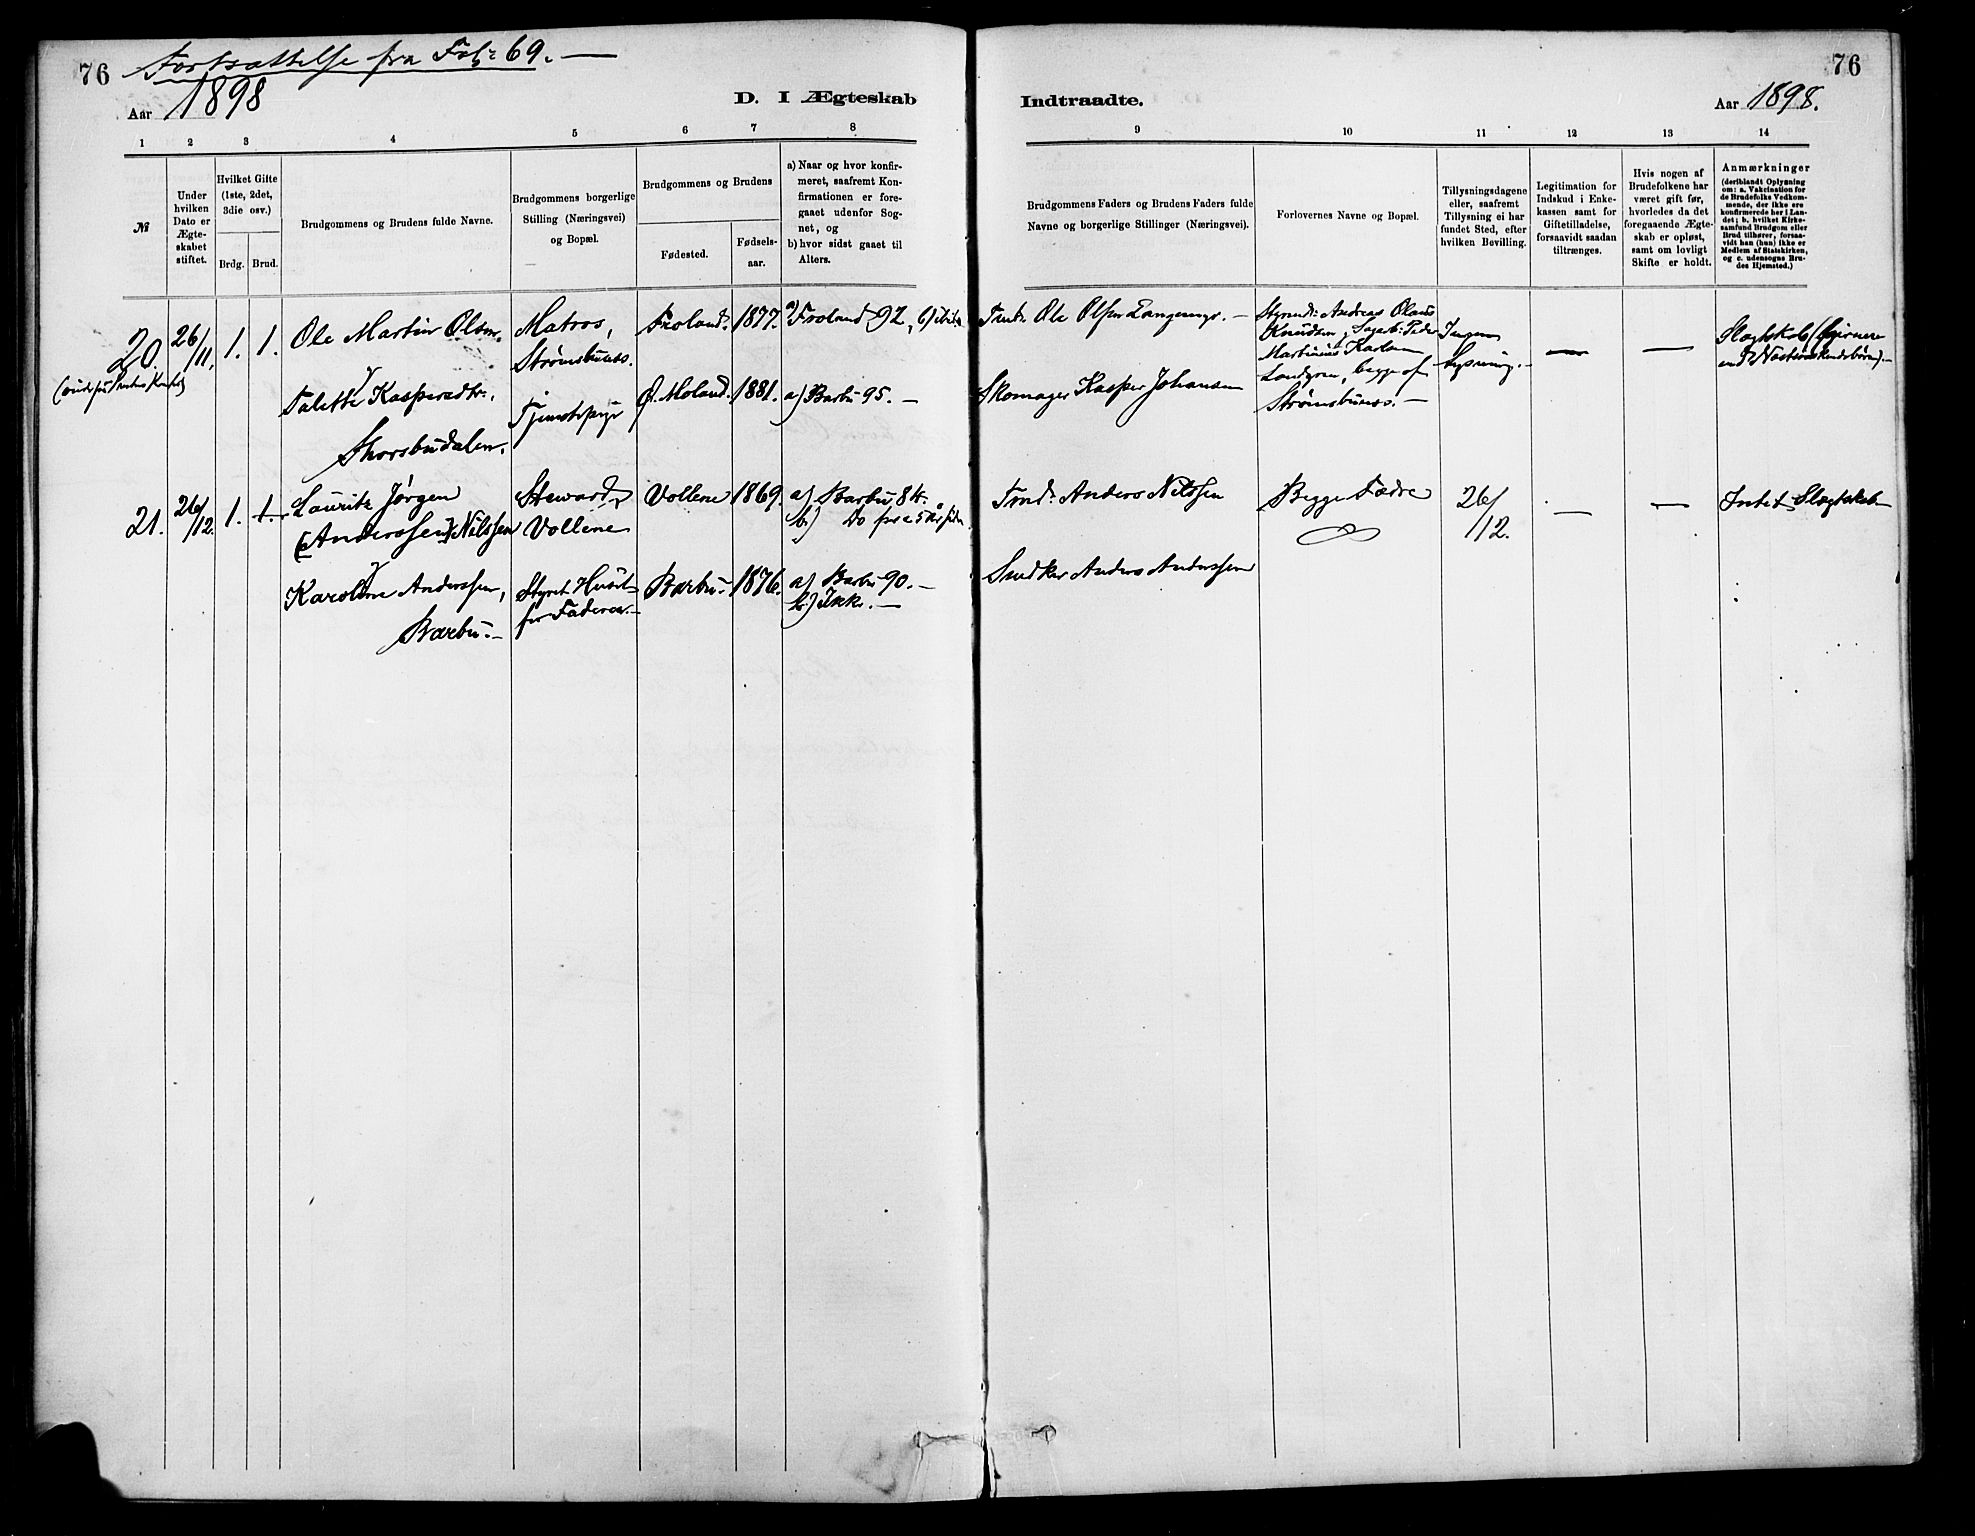 76 Fortsættelse fra Fol: 69. —
76
Aar 1898
D. I Ægteskab
Indtraadte.
Aar 1898.
1 2 3 4 5 6 7 8
9 10 11 12 13 14
№
Under
hvilken
Dato er
Ægte-
skabet
stiftet.
Hvilket Gifte
(1ste, 2det,
3die osv.)
Brdg. Brud.
Brudgommens og Brudens fulde Navne.
Brudgommens borgerlige
Stilling (Næringsvei)
og Bopæl.
Brudgommens og Brudens
Fødested.
Fødsels-
aar.
a) Naar og hvor konfir-
meret, saafremt Kon-
firmationen er fore-
gaaet udenfor Sog-
net, og
b) hvor sidst gaaet til
Alters.
Brudgommens Faders og Brudens Faders fulde
Navne og borgerlige Stillinger (Næringsvei).
Forlovernes Navne og Bopæl.
Tillysningsdagene
eller, saafremt
Tillysning ei har
fundet Sted, efter
hvilken Bevilling.
Legitimation for
Indskud i Enke-
kassen samt for
Giftetilladelse,
forsaavidt saadan
tiltrænges.
Hvis nogen af
Brudefolkene har
været gift før,
hvorledes da det
foregaaende Ægte-
skab er opløst,
samt om lovligt
Skifte er holdt.
Anmærkninger
(deriblandt Oplysning
om: a. Vakcination for
de Brudefolks Vedkom-
mende, der ikke ere
konfirmerede her i Lan-
det; b. hvilket Kirke-
samfund Brudgom eller
Brud tilhører, forsaa-
vidt han (hun) ikke er
Medlem af Statskirken,
og c. udensogns Bru-
des Hjemsted.)
20.
26/11.
1. 1.
Ole Martin Olsen,
Matros,
Strømsbunæs.
Froland. 1877.
a) Froland 92, b) ibid.
Ole Olsen
Andreas Olaus
Knudsen,
Martinius Karlsen
Lundgren, begge af
Strømsbunæs. —
Ingen
Lysning. —
—
—
Slægtskab
Talette Kaspersdtr.,
Skorsbudalen.
Tjenestepige
Ø. Moland. 1881.
a) Barbu 95. —
Skomager Kasper Johansen
21.
26/12.
1. 1.
Lauritz Jørgen
(Anderssen) Nilssen
Steward,
Vollene
Vollene 1869.
a) Barbu 84.
b) Do for c 5 Aar siden
Tmd. Anders Nilssen
Begge Fædre
26/12.
—
—
Intet Slægtskab
Karoline Anderssen,
Barbu. —
Styret Huset
for Faderen. —
Barbu. 1876.
a) Barbu 90. —
b) Ikke. —
Snedker Anders Anderssen